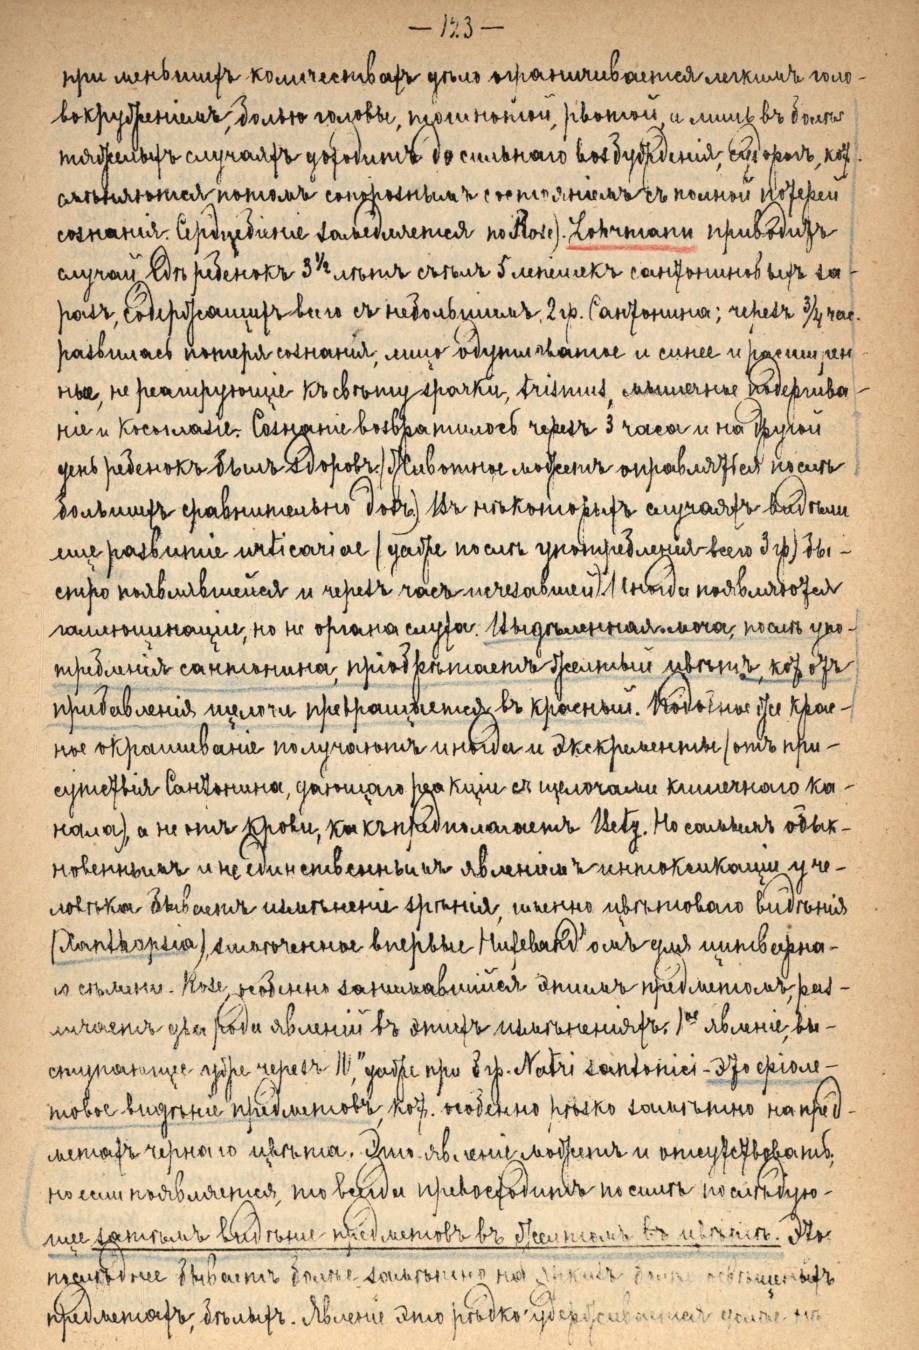 — 123 —
при меньшихъ количествахъ дѣло ограничивается легкимъ голо-
вокруженіемъ, болью головы, тошнотой, рвотой, и лишь въ болѣе
тяжелыхъ случаяхъ доходитъ до сильнаго возбужденія, судорогъ, кот.
смѣняются потомъ сопорознымъ состояніемъ съ полной потерей
сознанія. Сердцебіеніе замедляется по Rose). приводитъ
случай, гдѣ ребенокъ 3½ лѣтъ съѣлъ 5 лепешекъ сантониновыхъ за-
разъ, содержащихъ всего съ небольшимъ 2 гр. Сантонина; черезъ ¾ час.
развилась потеря сознанія, лицо одутловатое и синее и расширен-
ные, не реагирующіе къ свѣту зрачки, trismus, мышечные подергива-
ніе и косоглазіе. Сознаніе возвратилось черезъ 3 часа и на другой
день ребенокъ былъ здоровъ.) Животное можетъ оправляться послѣ
большихъ сравнительно дозъ) Въ нѣкоторыхъ случаяхъ видѣли
еще развитіе urticariae (даже послѣ употребленія всего 3 гр) бы-
стро появлявшейся и черезъ часъ исчезавшей) Иногда появляются
галлюцинаціи, но не органа слуха. Выдѣленная моча, послѣ упо-
требленія сантонина, пріобрѣтаетъ желтый цвѣтъ, кот. отъ
прибавленія щелочи превращается въ красный. Подобное же крас-
ное окрашиваніе получаютъ иногда и экскременты (отъ при-
сутствія Сантонина, дающаго реакціи съ щелочами кишечнаго ка-
нала), а не отъ крови, какъ предполагаетъ Но самымъ обык-
новеннымъ и не единственнымъ явленіемъ интоксикаціи у че-
ловѣка бываетъ измѣненіе зрѣнія, именно цвѣтоваго видѣнія
(Xanthopsia), замѣченное впервые Hufeland'омъ для цитварна-
го сѣмени. Rose, особенно занимавшійся этимъ предметомъ, раз-
личаетъ два рода явленій въ этихъ измѣненіяхъ. 1ое явленіе, вы-
ступающее уже черезъ 10", даже при гр. Natri santonici - это фіоле-
товое видѣніе предметовъ, кот. особенно рѣзко замѣтно на пред-
метахъ чернаго цвѣта. Это явленіе можетъ и отсутствовать,
но если появляется, то всегда превосходитъ по силѣ послѣдую-
щее затѣмъ видѣніе предметовъ въ желтомъ въ цвѣтѣ. Это
послѣднее бываетъ болѣе замѣтно на освѣщенныхъ
предметахъ, бѣлыхъ. Явленіе это рѣдко удерживается